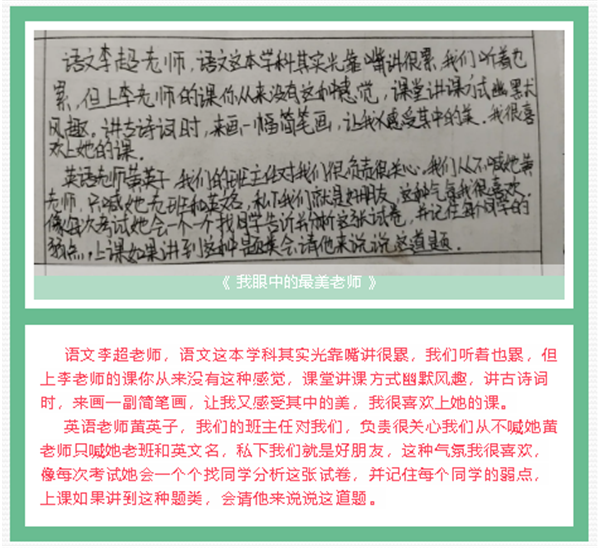 语文李超老师，语文这本学科其实光靠嘴讲很累，我们听着也
累，但上李老师的课你从来没有这种感觉，课堂讲课方式幽默
风趣。讲古诗词时，来画一幅简笔画，让我感受其中的美。我很喜
欢上她的课。
英语老师黄英子，我们的班主任对我们很负责很关心，我们从不喊她黄
老师，只喊她老班和英文名，私下我们就是好朋友，这种气氛我很喜欢，
像每次考试她会一个个找同学告诉并分析这张试卷，并记住每个同学的
弱点，上课如果讲到这种题类会请他来说说这道题。
《 我眼中的最美老师 》
语文李超老师，语文这本学科其实光靠嘴讲很累，我们听着也累，但
上李老师的课你从来没有这种感觉，课堂讲课方式幽默风趣，讲古诗词
时，来画一副简笔画，让我又感受其中的美，我很喜欢上她的课。
英语老师黄英子，我们的班主任对我们，负责很关心我们从不喊她黄
老师只喊她老班和英文名，私下我们就是好朋友，这种气氛我很喜欢，
像每次考试她会一个个找同学分析这张试卷，并记住每个同学的弱点，
上课如果讲到这种题类，会请他来说说这道题。